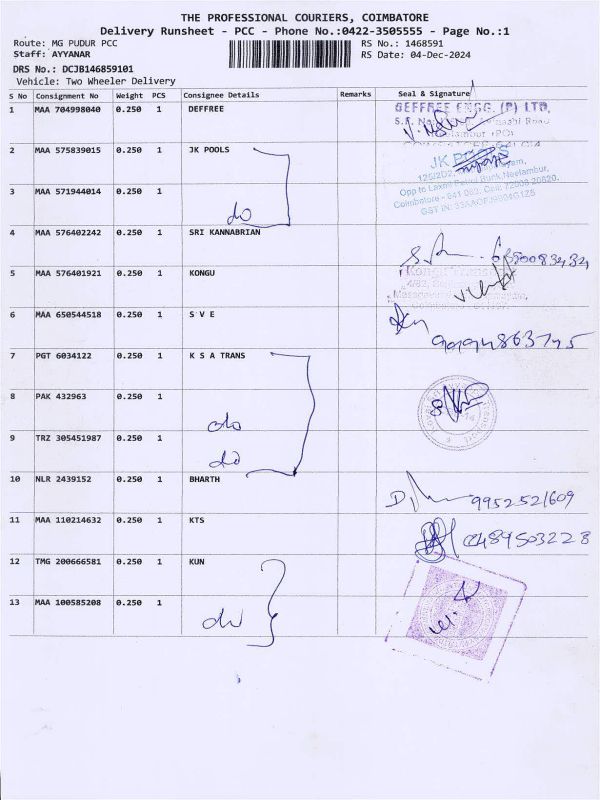 THE PROFESSIONAL COURIERS, COIMBATORE
Delivery Runsheet - PCC - Phone No.:0422-3505555 - Page No.:1
Route: MG PUDUR PCC RS No.: 1468591
Staff: AYYANAR RS Date: 04-Dec-2024
DRS No.: DCJB146859101
Vehicle: Two Wheeler Delivery
S No Consignment No Weight PCS Consignee Details Remarks Seal & Signature
1 MAA 704998040 0.250 1 DEFFREE GEFFREE ENGG. (P) LTD,
2 MAA 575839015 0.250 1 JK POOLS JK POOLS
3 MAA 571944014 0.250 1
do
4 MAA 576402242 0.250 1 SRI KANNABRIAN
5 MAA 576401921 0.250 1 KONGU
6 MAA 650544518 0.250 1 S V E
7 PGT 6034122 0.250 1 K S A TRANS
8 PAK 432963 0.250 1
do
9 TRZ 305451987 0.250 1
do
10 NLR 2439152 0.250 1 BHARTH 9952521609
11 MAA 110214632 0.250 1 KTS
12 TMG 200666581 0.250 1 KUN
13 MAA 100585208 0.250 1
do